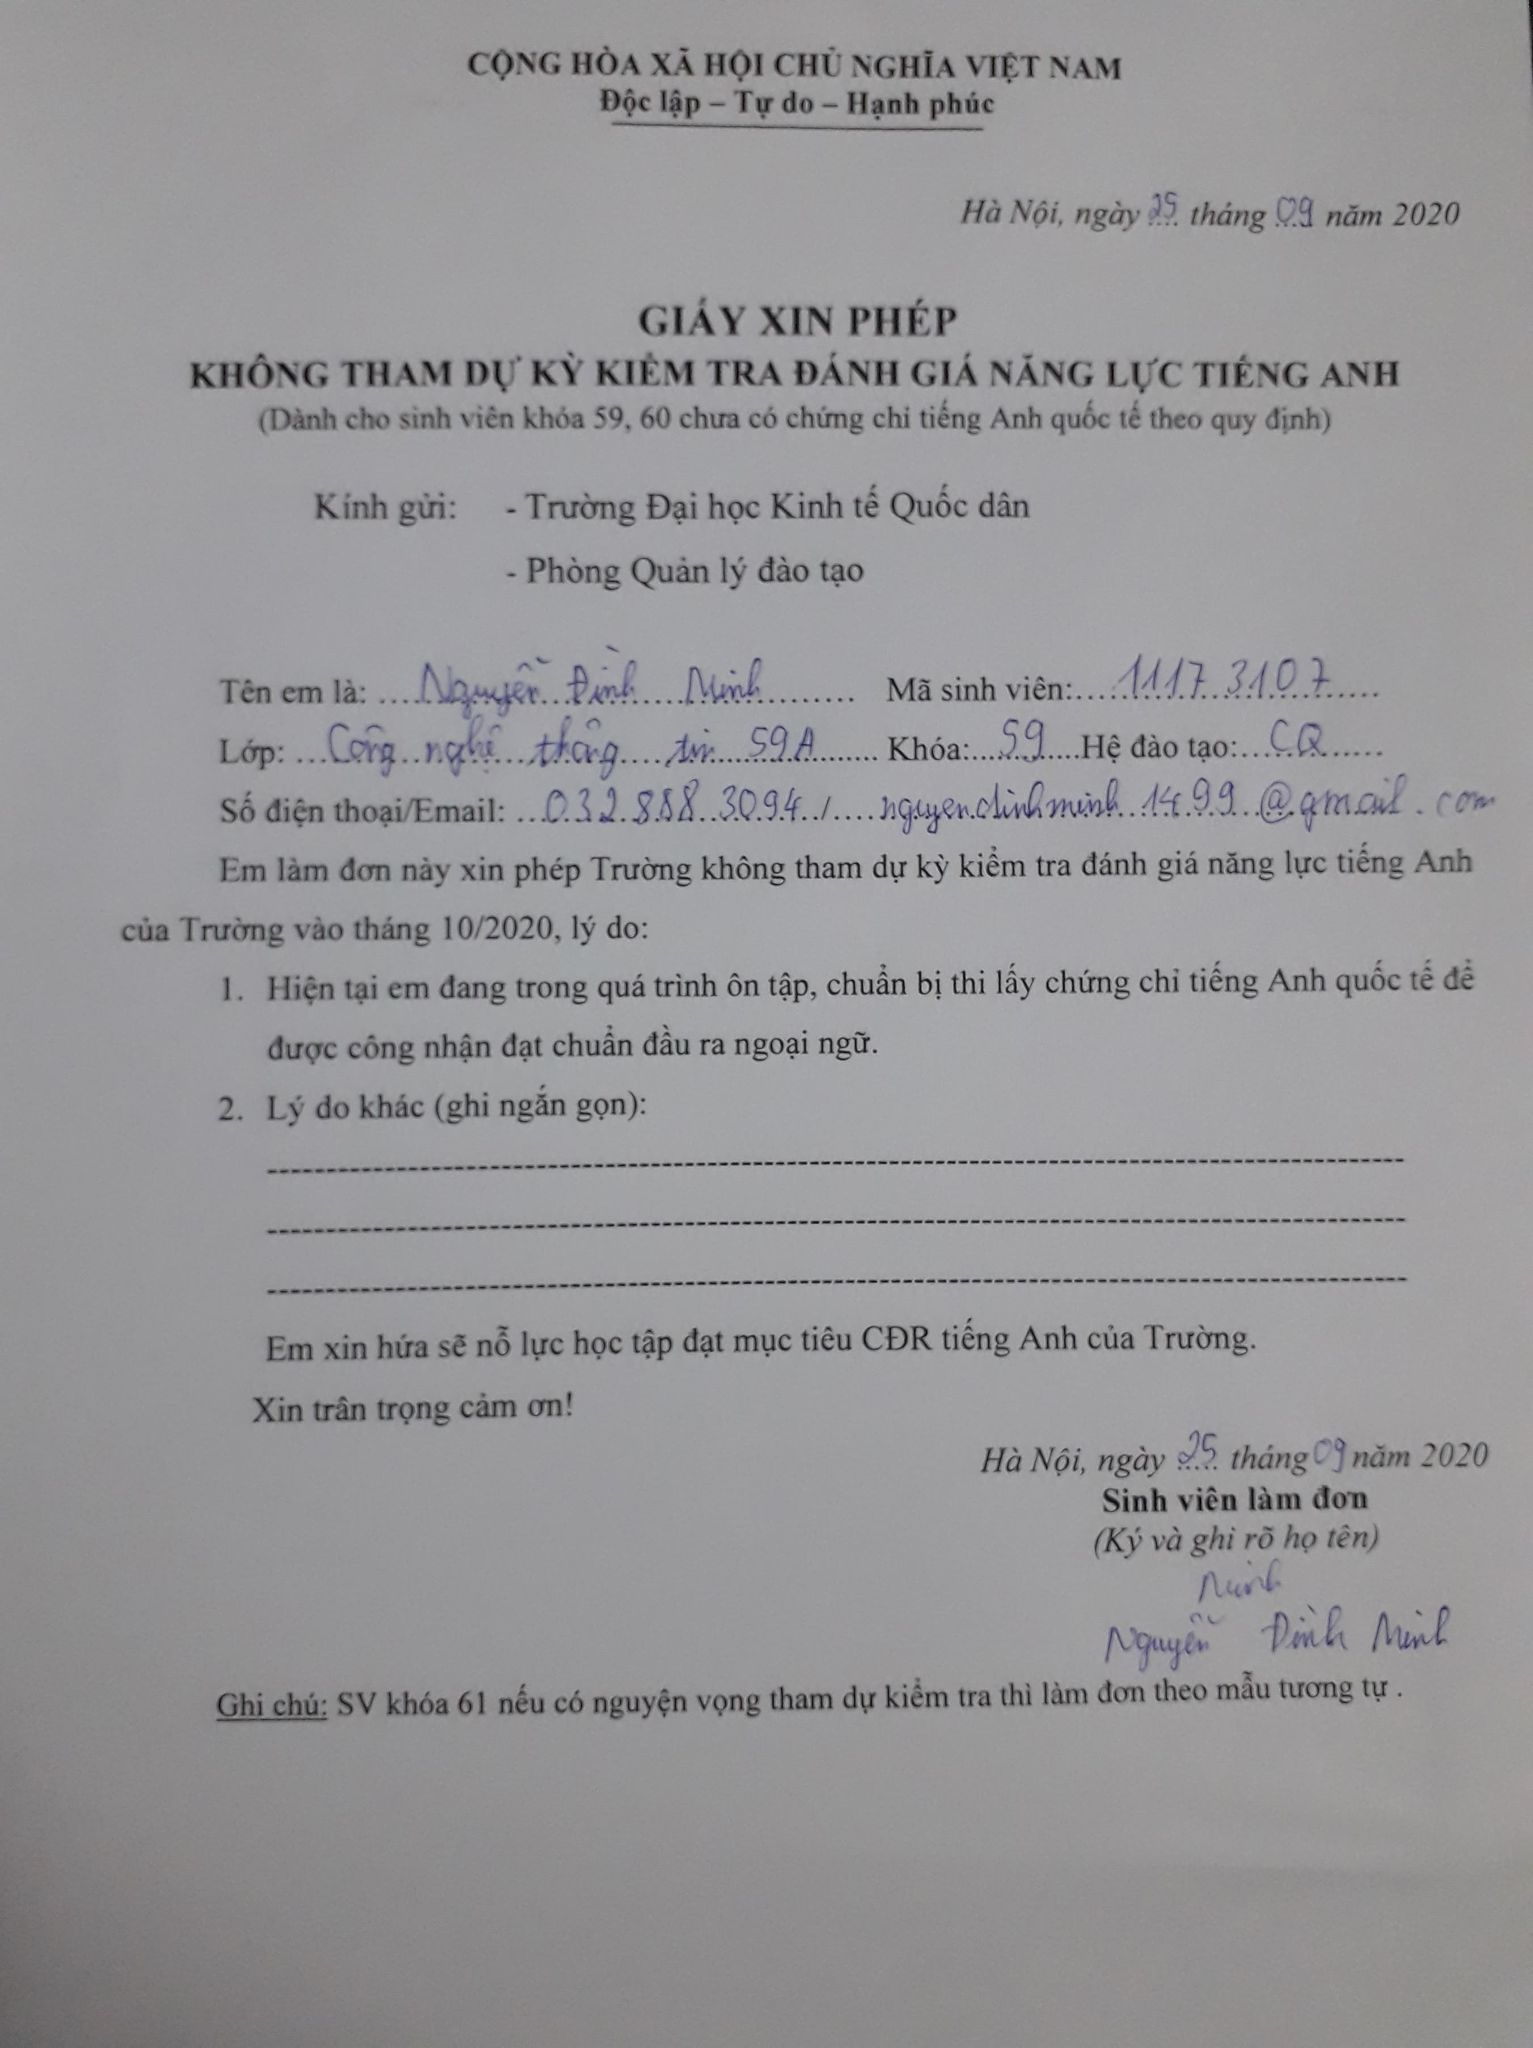 CỘNG HÒA XÃ HỘI CHỦ NGHĨA VIỆT NAM
Độc lập – Tự do – Hạnh phúc
Hà Nội, ngày 25 tháng 09 năm 2020
GIẤY XIN PHÉP
KHÔNG THAM DỰ KỲ KIỂM TRA ĐÁNH GIÁ NĂNG LỰC TIẾNG ANH
(Dành cho sinh viên khóa 59, 60 chưa có chứng chỉ tiếng Anh quốc tế theo quy định)
Kính gửi: - Trường Đại học Kinh tế Quốc dân
- Phòng Quản lý đào tạo
Tên em là: Nguyễn Đình Minh Mã sinh viên: 11173107
Lớp: Công nghệ thông tin 59A Khóa: 59 Hệ đào tạo: CQ
Số điện thoại/Email: 032.888.3094 / nguyendinhminh1499@gmail.com
Em làm đơn này xin phép Trường không tham dự kỳ kiểm tra đánh giá năng lực tiếng Anh
của Trường vào tháng 10/2020, lý do:
1. Hiện tại em đang trong quá trình ôn tập, chuẩn bị thi lấy chứng chỉ tiếng Anh quốc tế để
được công nhận đạt chuẩn đầu ra ngoại ngữ.
2. Lý do khác (ghi ngắn gọn):
Em xin hứa sẽ nỗ lực học tập đạt mục tiêu CĐR tiếng Anh của Trường.
Xin trân trọng cảm ơn!
Hà Nội, ngày 25 tháng 09 năm 2020
Sinh viên làm đơn
(Ký và ghi rõ họ tên)
Minh
Nguyễn Đình Minh
Ghi chú: SV khóa 61 nếu có nguyện vọng tham dự kiểm tra thì làm đơn theo mẫu tương tự .